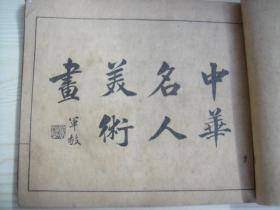 中華
名人
美術
畫